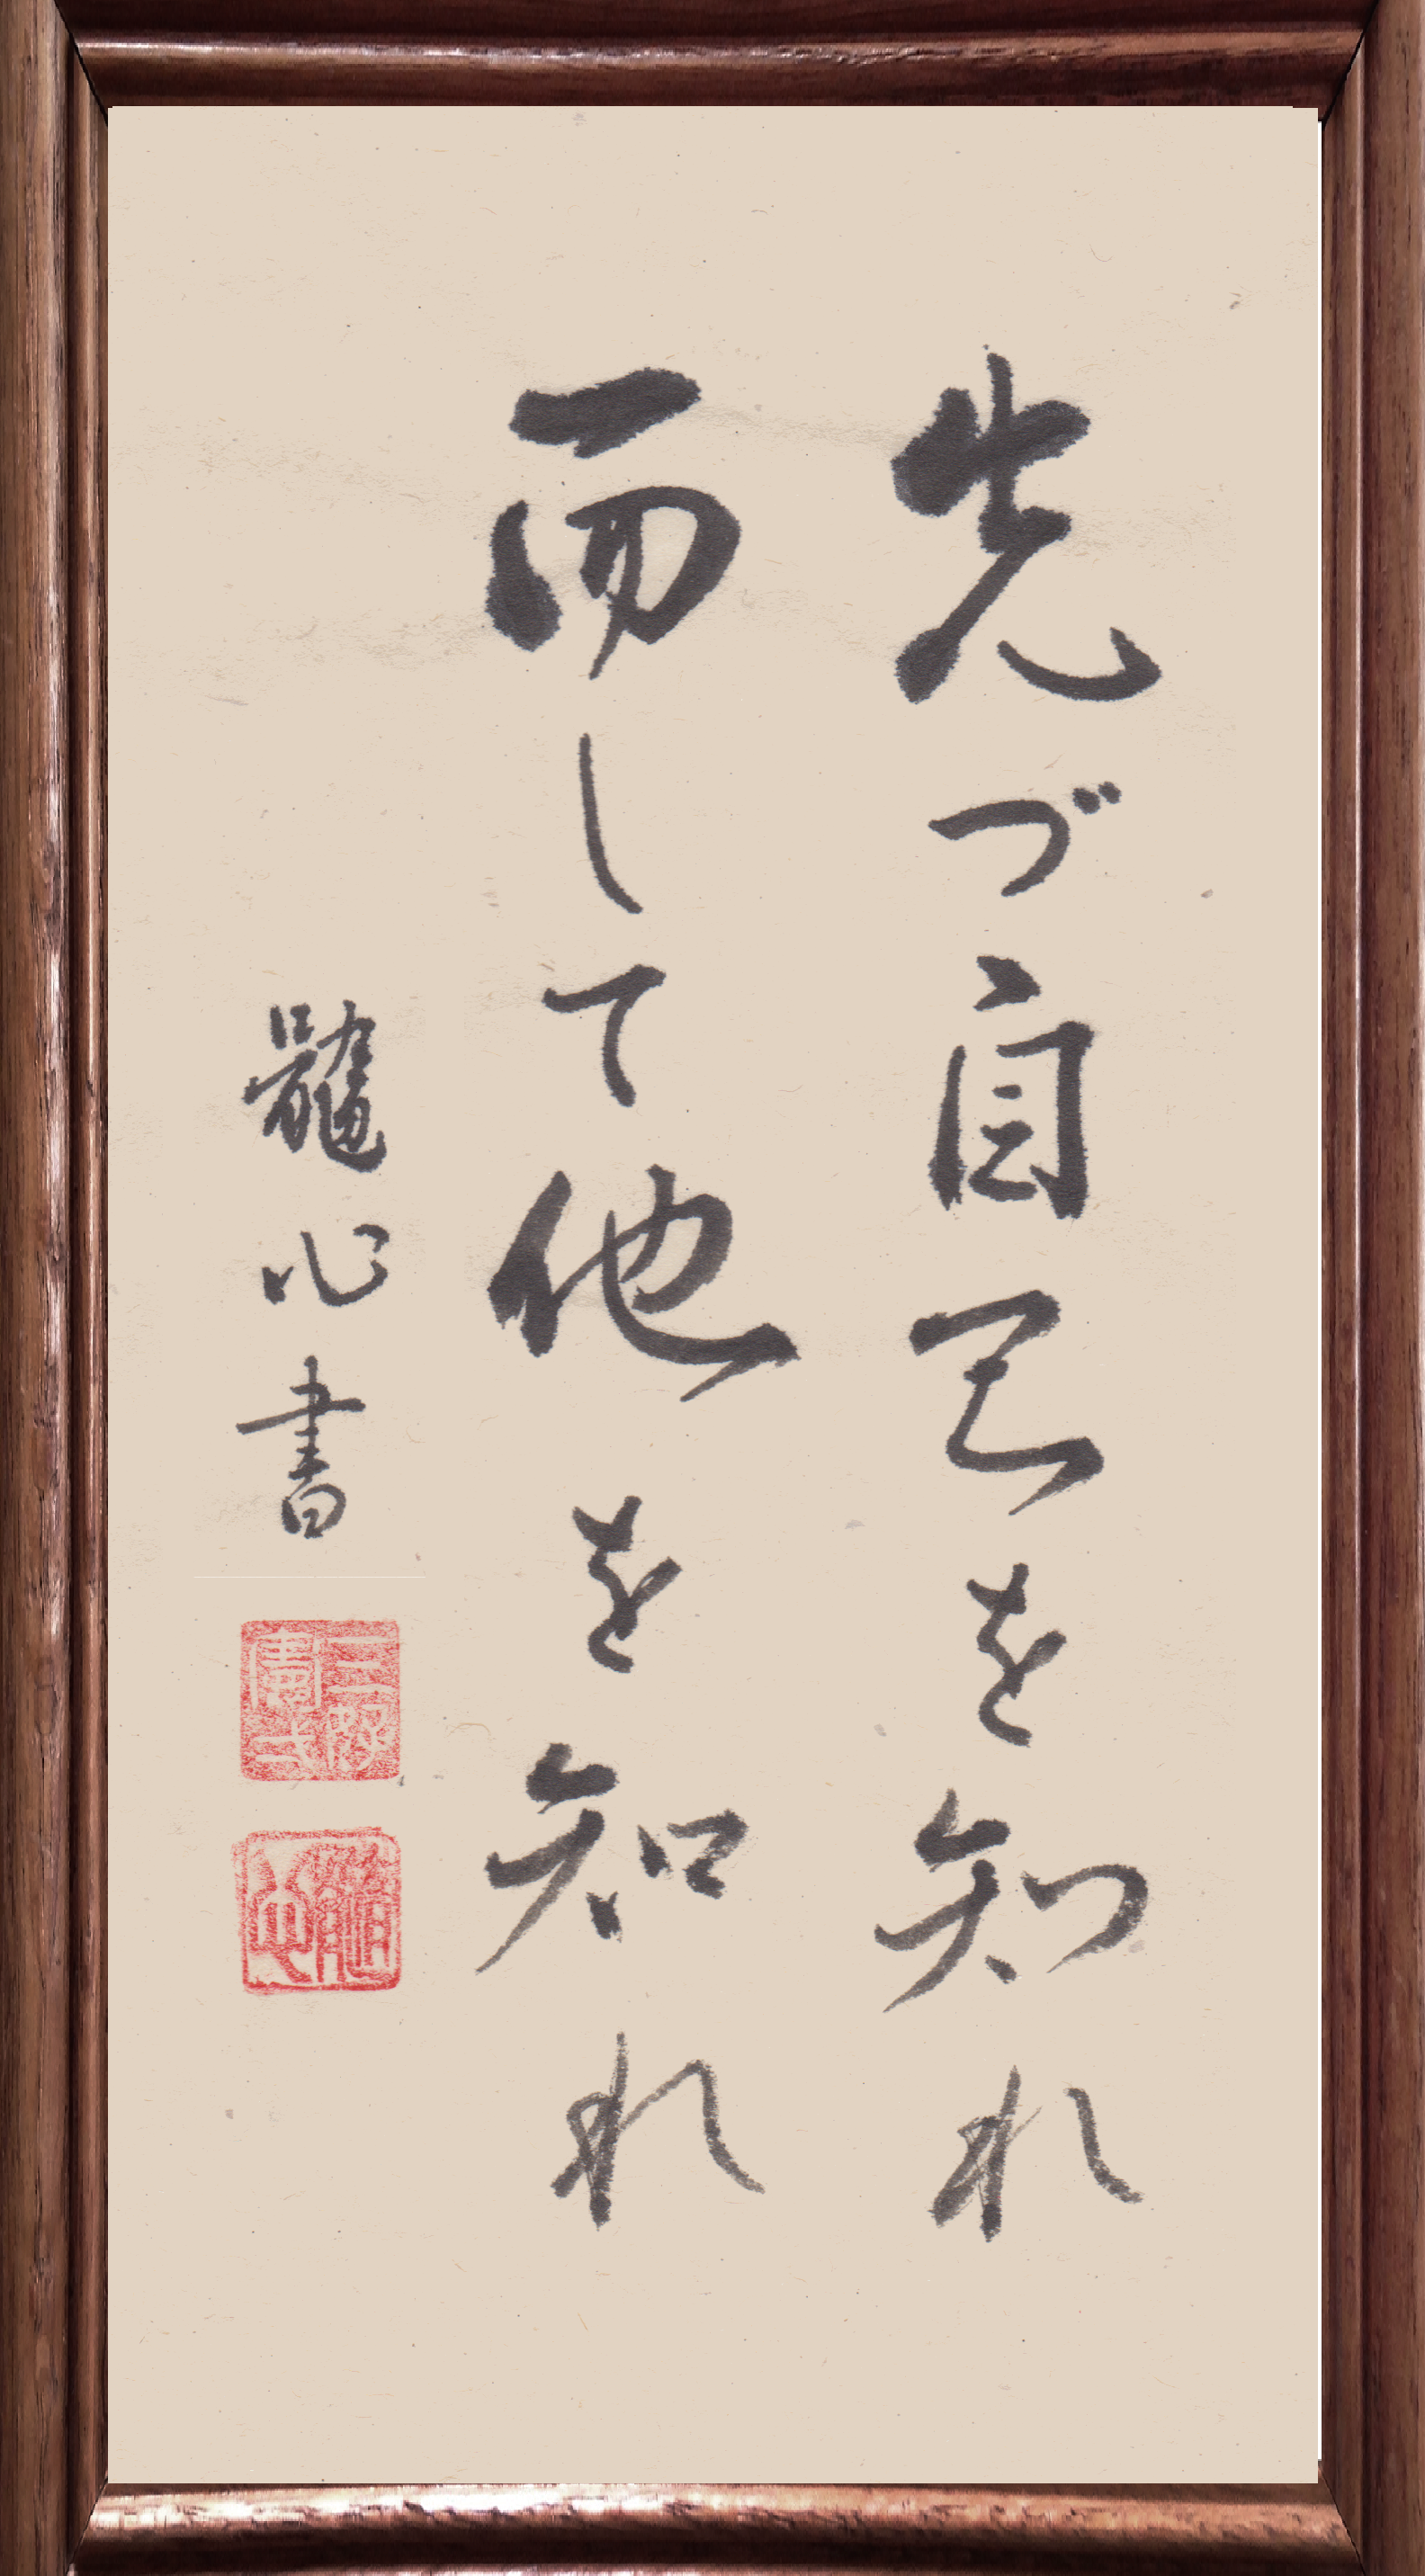 先づ自己を知れ
而して他を知れ
心書